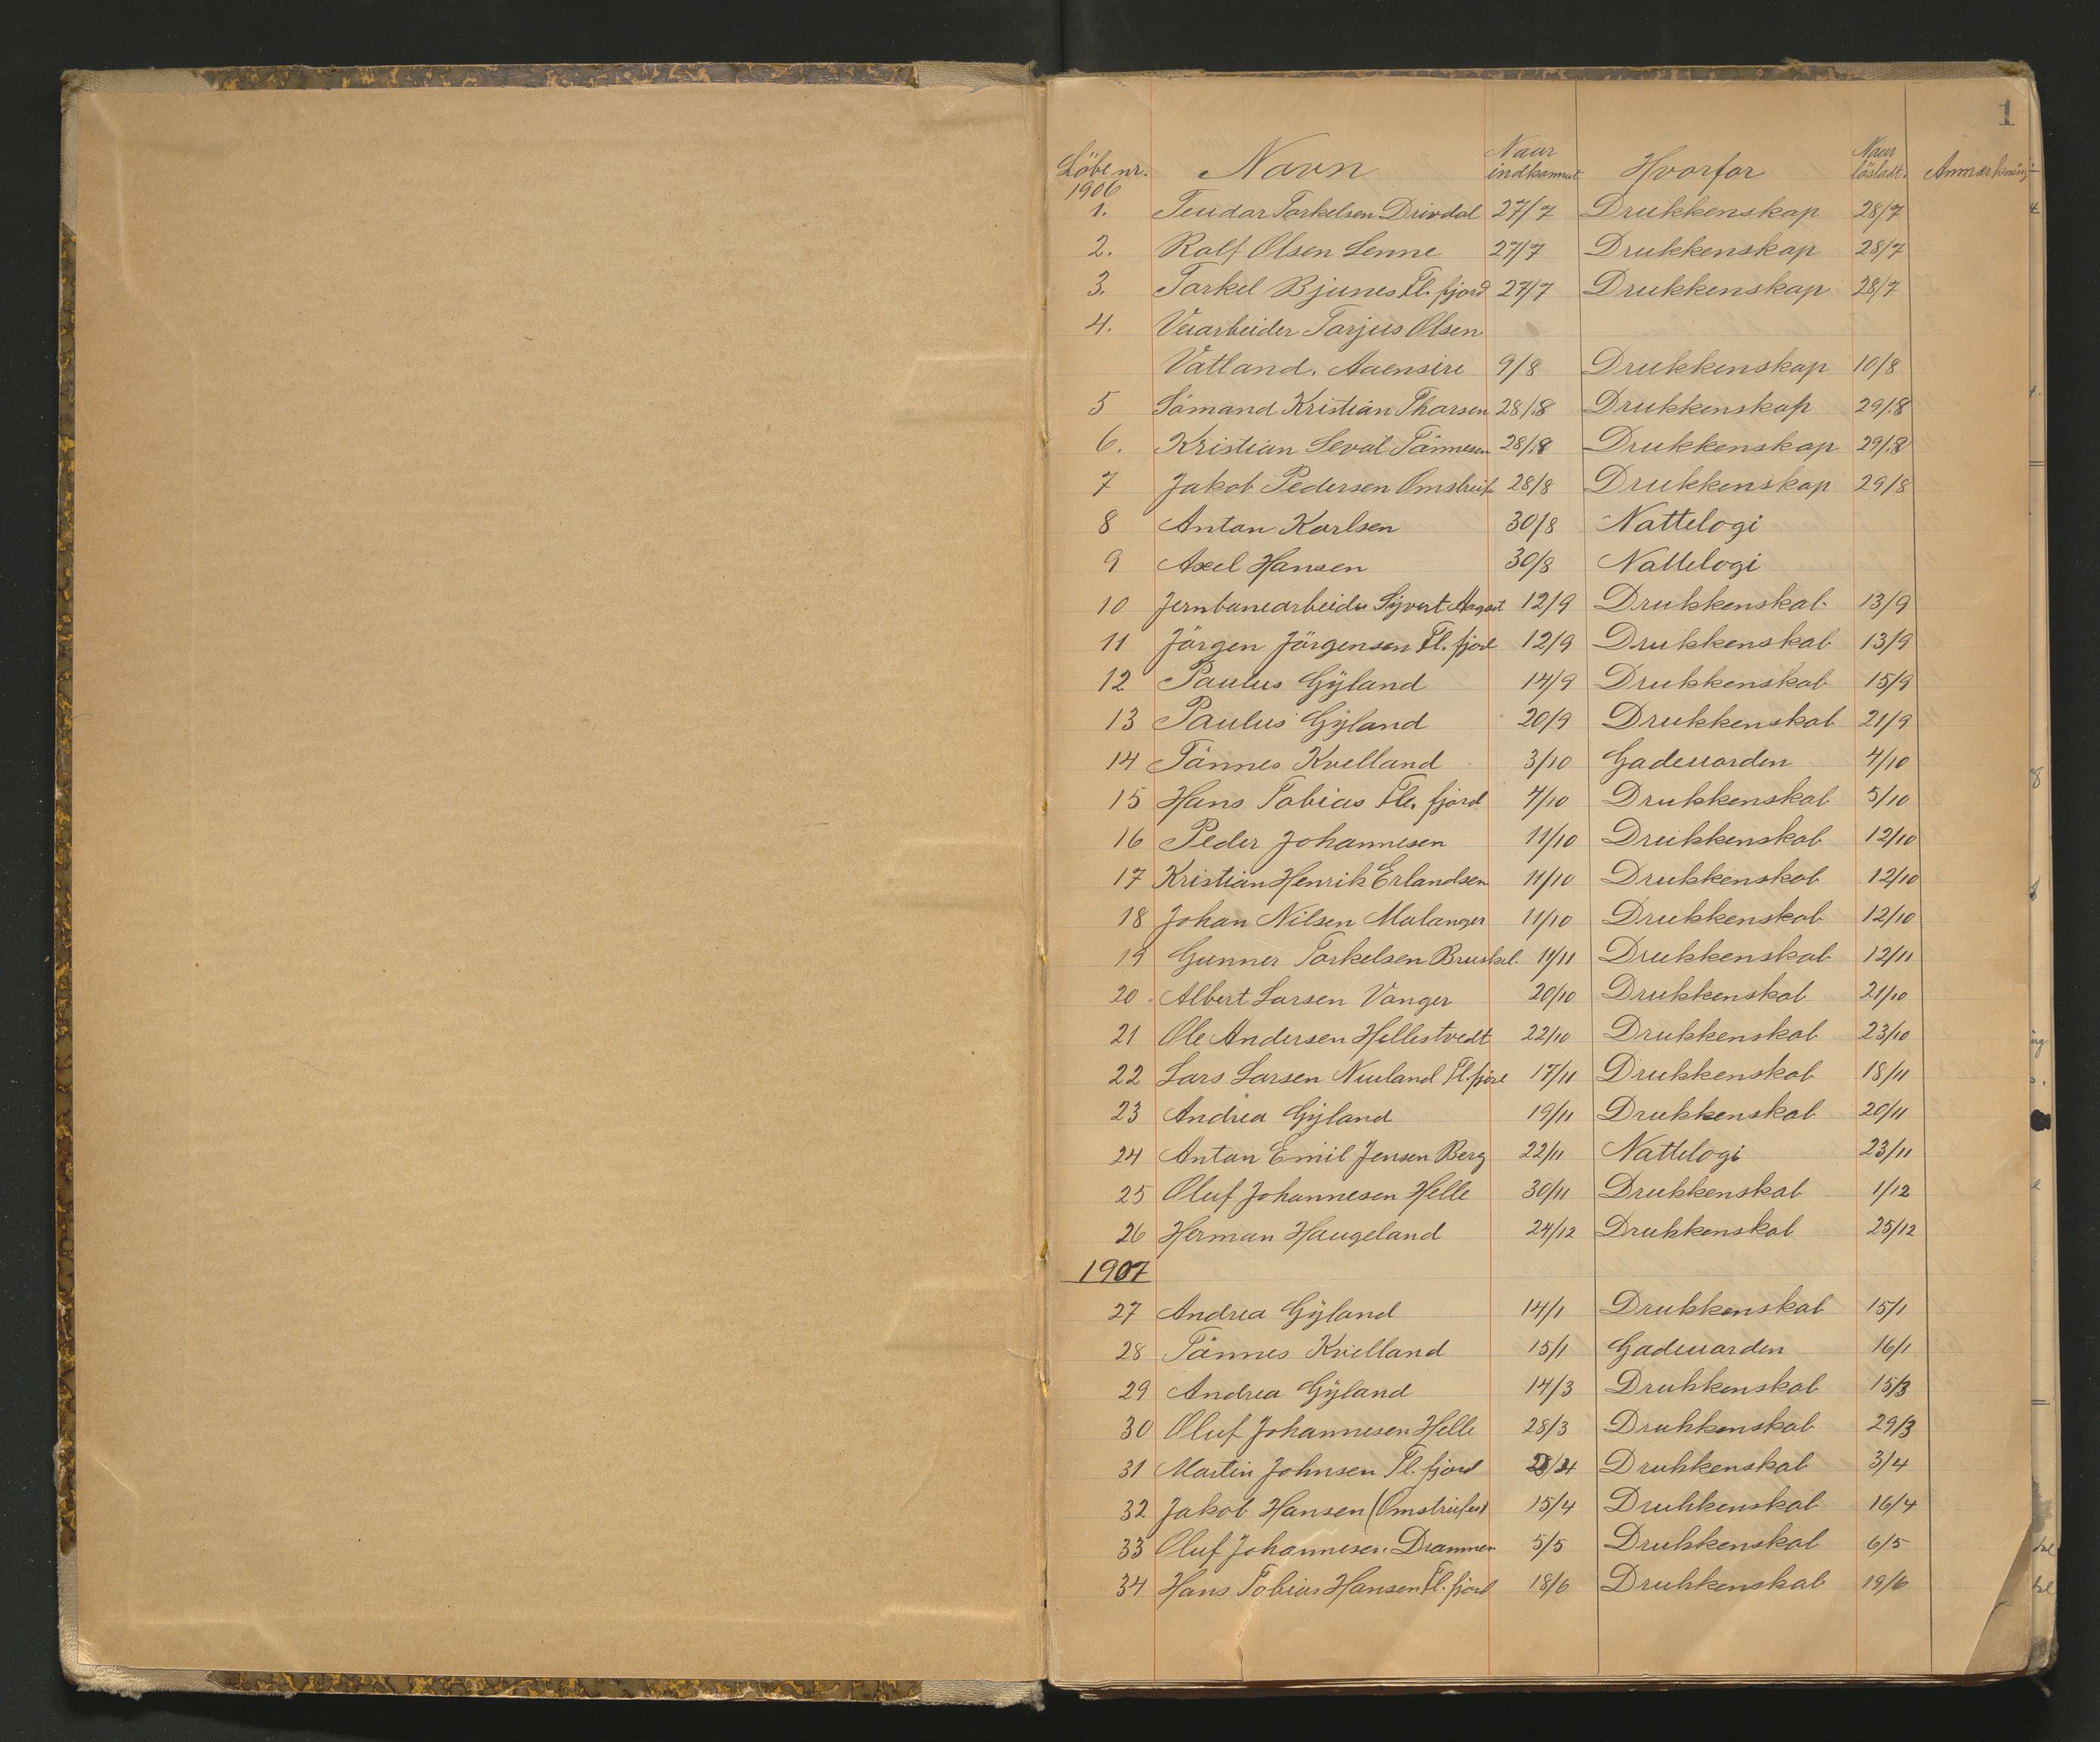 1
Löbe nr. Navn Naar indkommet Hvorfor Naar lösladt. Anmærkning
1906
1. Teudor Torkelsen Drivdal 27/7 Drukkenskap 28/7
2. Rolf Olsen Lenne 27/7 Drukkenskap 28/7
3. Torkel Bjunes Fl. fjord 27/7 Drukkenskap 28/7
4. Veiarbeider Tarjus Olsen
Vatland. Aaensire 9/8 Drukkenskap 10/8
5 Sömand Kristian Thorsen 28/8 Drukkenskap 29/8
6. Kristian Seval Tönnesen 28/8 Drukkenskap 29/8
7 Jakob Pedersen Omstreif. 28/8 Drukkenskap 29/8
8 Anton Karlsen 30/8 Nattelogi
9 Axel Hansen 30/8 Nattelogi
10 Jernbanearbeider Sijvert 12/9 Drukkenskab 13/9
11 Jörgen Jörgensen Fl. fjord 12/9 Drukkenskab 13/9
12 Paulus Gÿland 14/9 Drukkenskab 15/9
13 Paulus Gÿland 20/9 Drukkenskab 21/9
14 Tönnes Kvelland 3/10 Gadeuorden 4/10
15 Hans Tobias Fle. fjord 4/10 Drukkenskab 5/10
16 Peder Johannesen 11/10 Drukkenskab 12/10
17 Kristian Henrik Erlandsen 11/10 Drukkenskab 12/10
18 Johan Nilsen Malanger 11/10 Drukkenskab 12/10
19 Gunner Torkelsen Bruskel. 11/11 Drukkenskab 12/11
20 Albert Larsen Vanger 20/10 Drukkenskab 21/10
21 Ole Andersen Hellestvedt 22/10 Drukkenskab 23/10
22 Lars Larsen Nuland Fl. fjord 17/11 Drukkenskab 18/11
23 Andrea Gÿland 19/11 Drukkenskab 20/11
24 Anton Emil Jensen Berg 22/11 Nattelogi 23/11
25 Oluf Johannesen Helle 30/11 Drukkenskab 1/12
26 Herman Haugeland 24/12 Drukkenskab 25/12
1907
27 Andrea Gÿland 14/1 Drukkenskab 15/1
28 Tönnes Kvelland 15/1 Gadeuorden 16/1
29 Andrea Gÿland 14/3 Drukkenskab 15/3
30 Oluf Johannesen Helle 28/3 Drukkenskab 29/3
31 Martin Johnsen Fl. fjord 2/4 Drukkenskab 3/4
32 Jakob Hansen (Omstreifer) 15/4 Drukkenskab 16/4
33 Oluf Johannesen. Drammen 5/5 Drukkenskab 6/5
34 Hans Tobias Hansen Fl. fjord 18/6 Drukkenskab 19/6